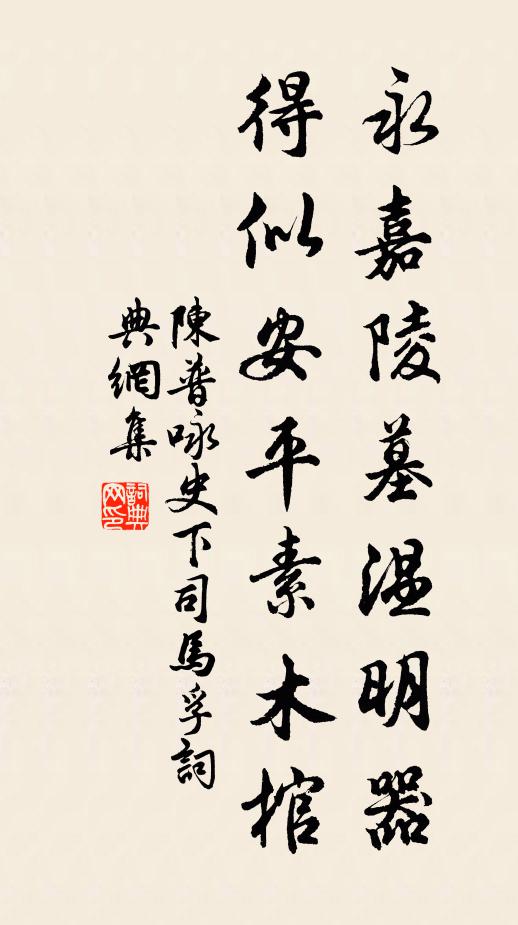 永嘉陵墓温明器
得似安平素木棺
陳普咏史下司馬孚詞
典網集
詞典
网印